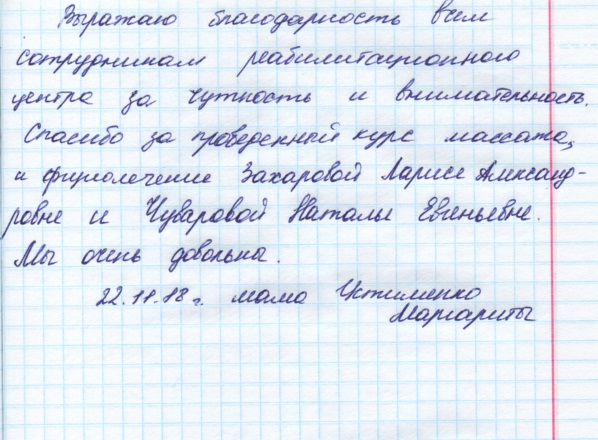 Выражаю благодарность всем
сотрудникам реабилитационного
центра за чуткость и внимательность.
Спасибо за проведенный курс массажа,
и физиолечение Захаровой Ларисе Александ-
ровне и Чуваровой Наталье Евгеньевне.
Мы очень довольны.
22.11.18 г. мама Устименко
Маргариты